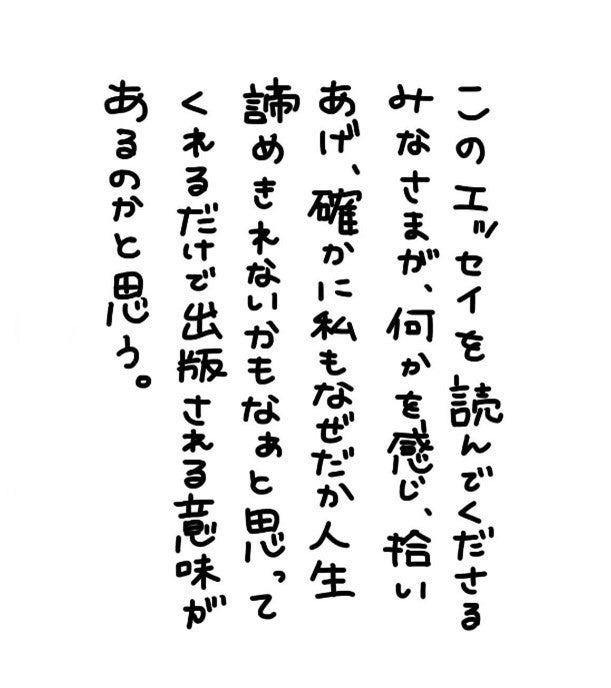 このエッセイを読んでくださる
みなさまが、何かを感じ、拾い
あげ、確かに私もなぜだか人生
諦めきれないかもなぁと思って
くれるだけで出版される意味が
あるのかと思う。